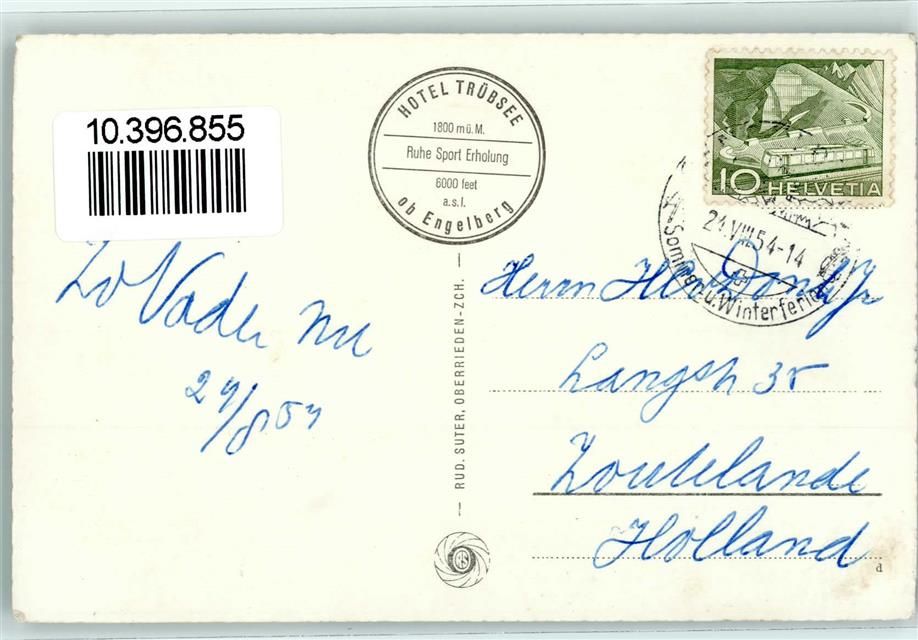 10.396.855
HOTEL TRÜBSEE
1800 m ü. M.
Ruhe Sport Erholung
6000 feet
a.s.l.
ob Engelberg
10 HELVETIA
24.VIII.54-14
Sommer- u. Winterferien
Zo Vader nu
24/8 54
RUD. SUTER, OBERRIEDEN-ZCH.
Herrn H
Langstr 35
Zoutelande
Holland
d